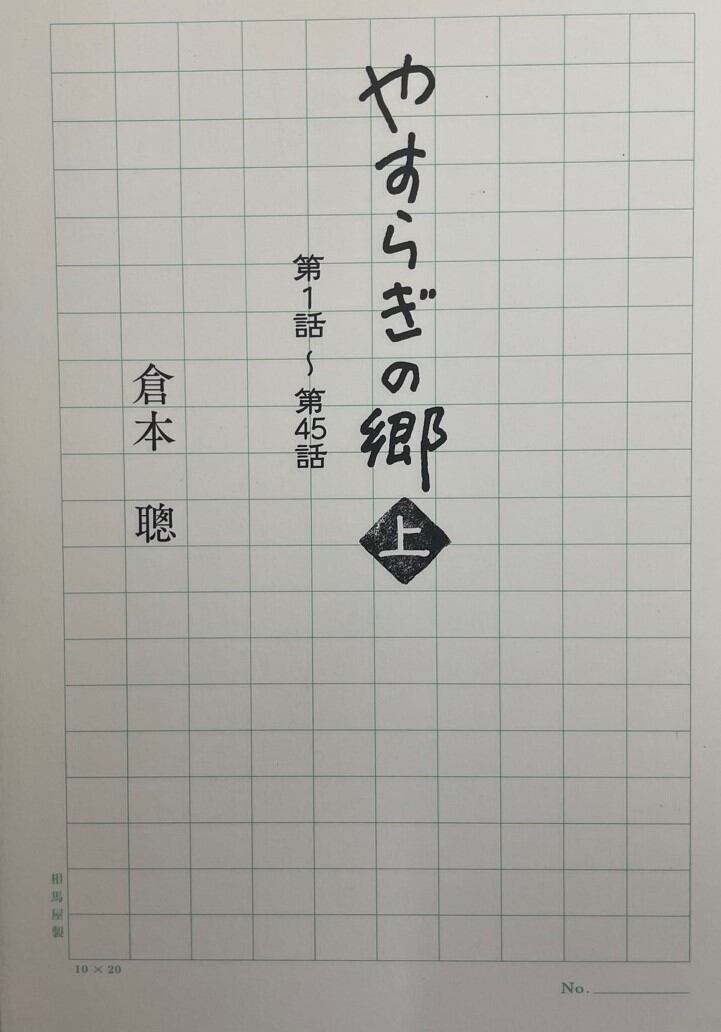 やすらぎの郷 上
第1話〜第45話
倉本 聰
相馬屋製
10×20
No.